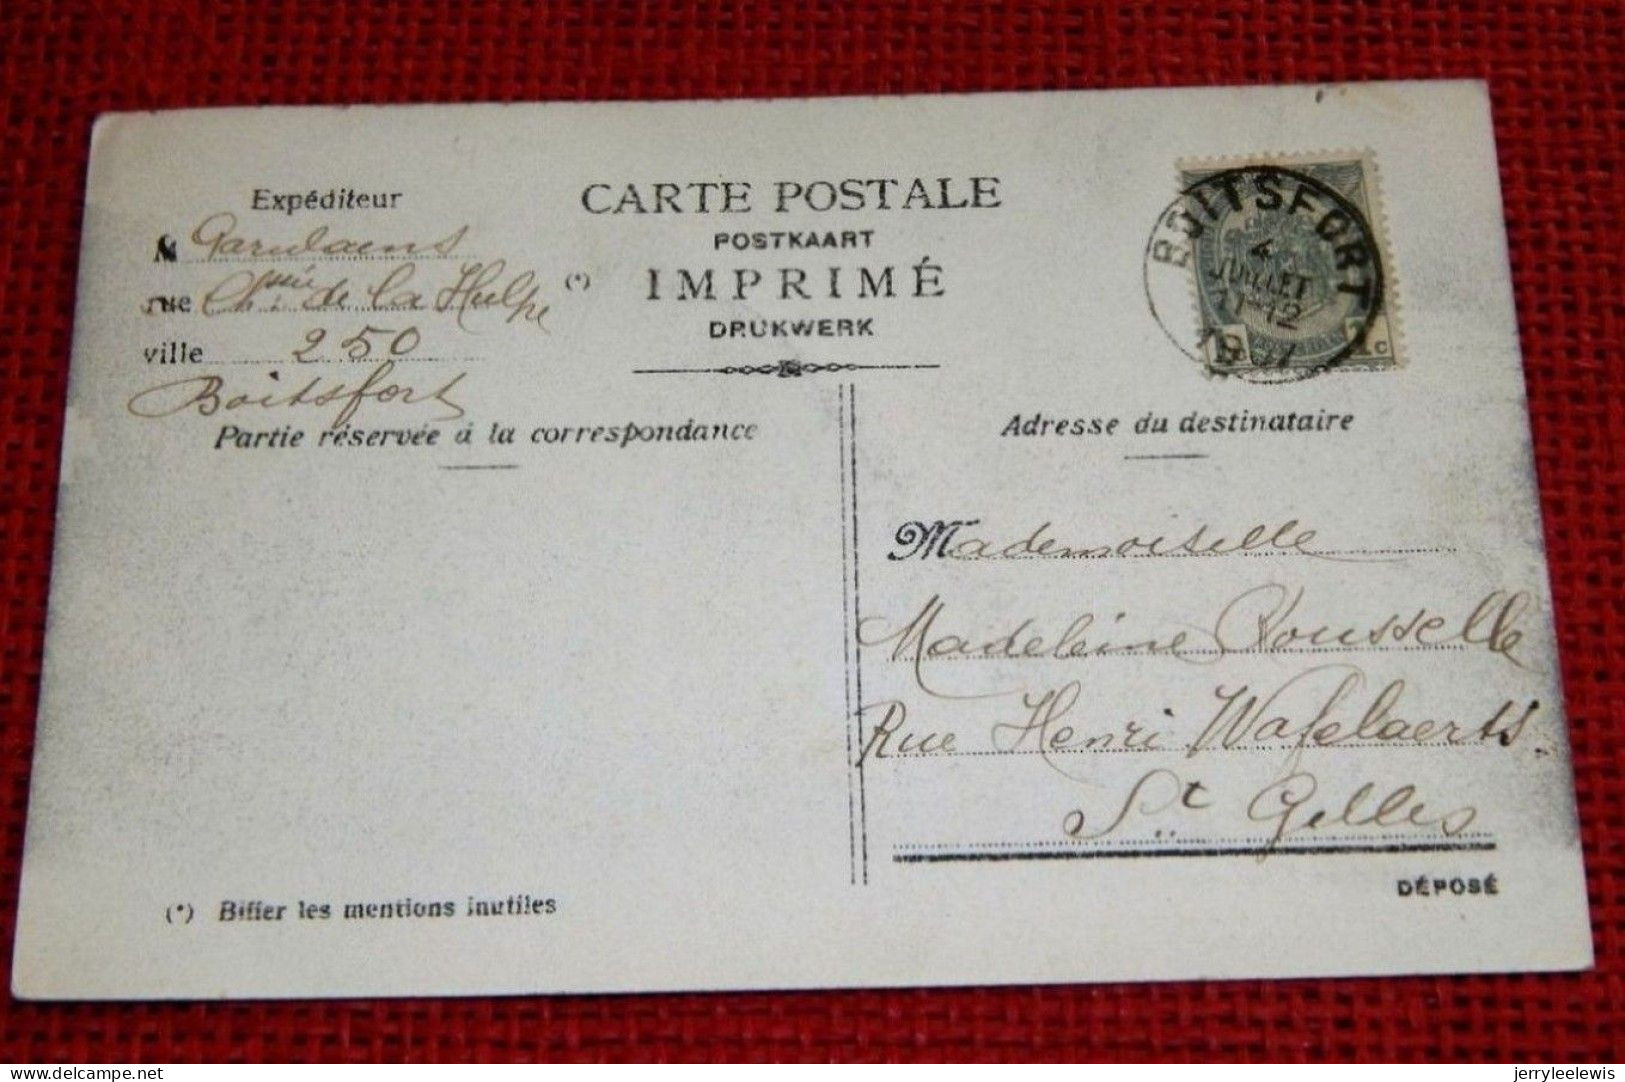 Expéditeur
rue Ch.ssée de la Hulpe
ville 250
Boitsfort
CARTE POSTALE
POSTKAART
(*) IMPRIMÉ
DRUKWERK
BOITSFORT
4
JUILLET
11-12
1907
1 1c
Partie réservée à la correspondance
Adresse du destinataire
Mademoiselle
Madeleine Rousselle
Rue Henri Wafelaerts.
St Gilles
DÉPOSÉ
(*) Biffer les mentions inutiles
delcampe.net
jerryleelewis